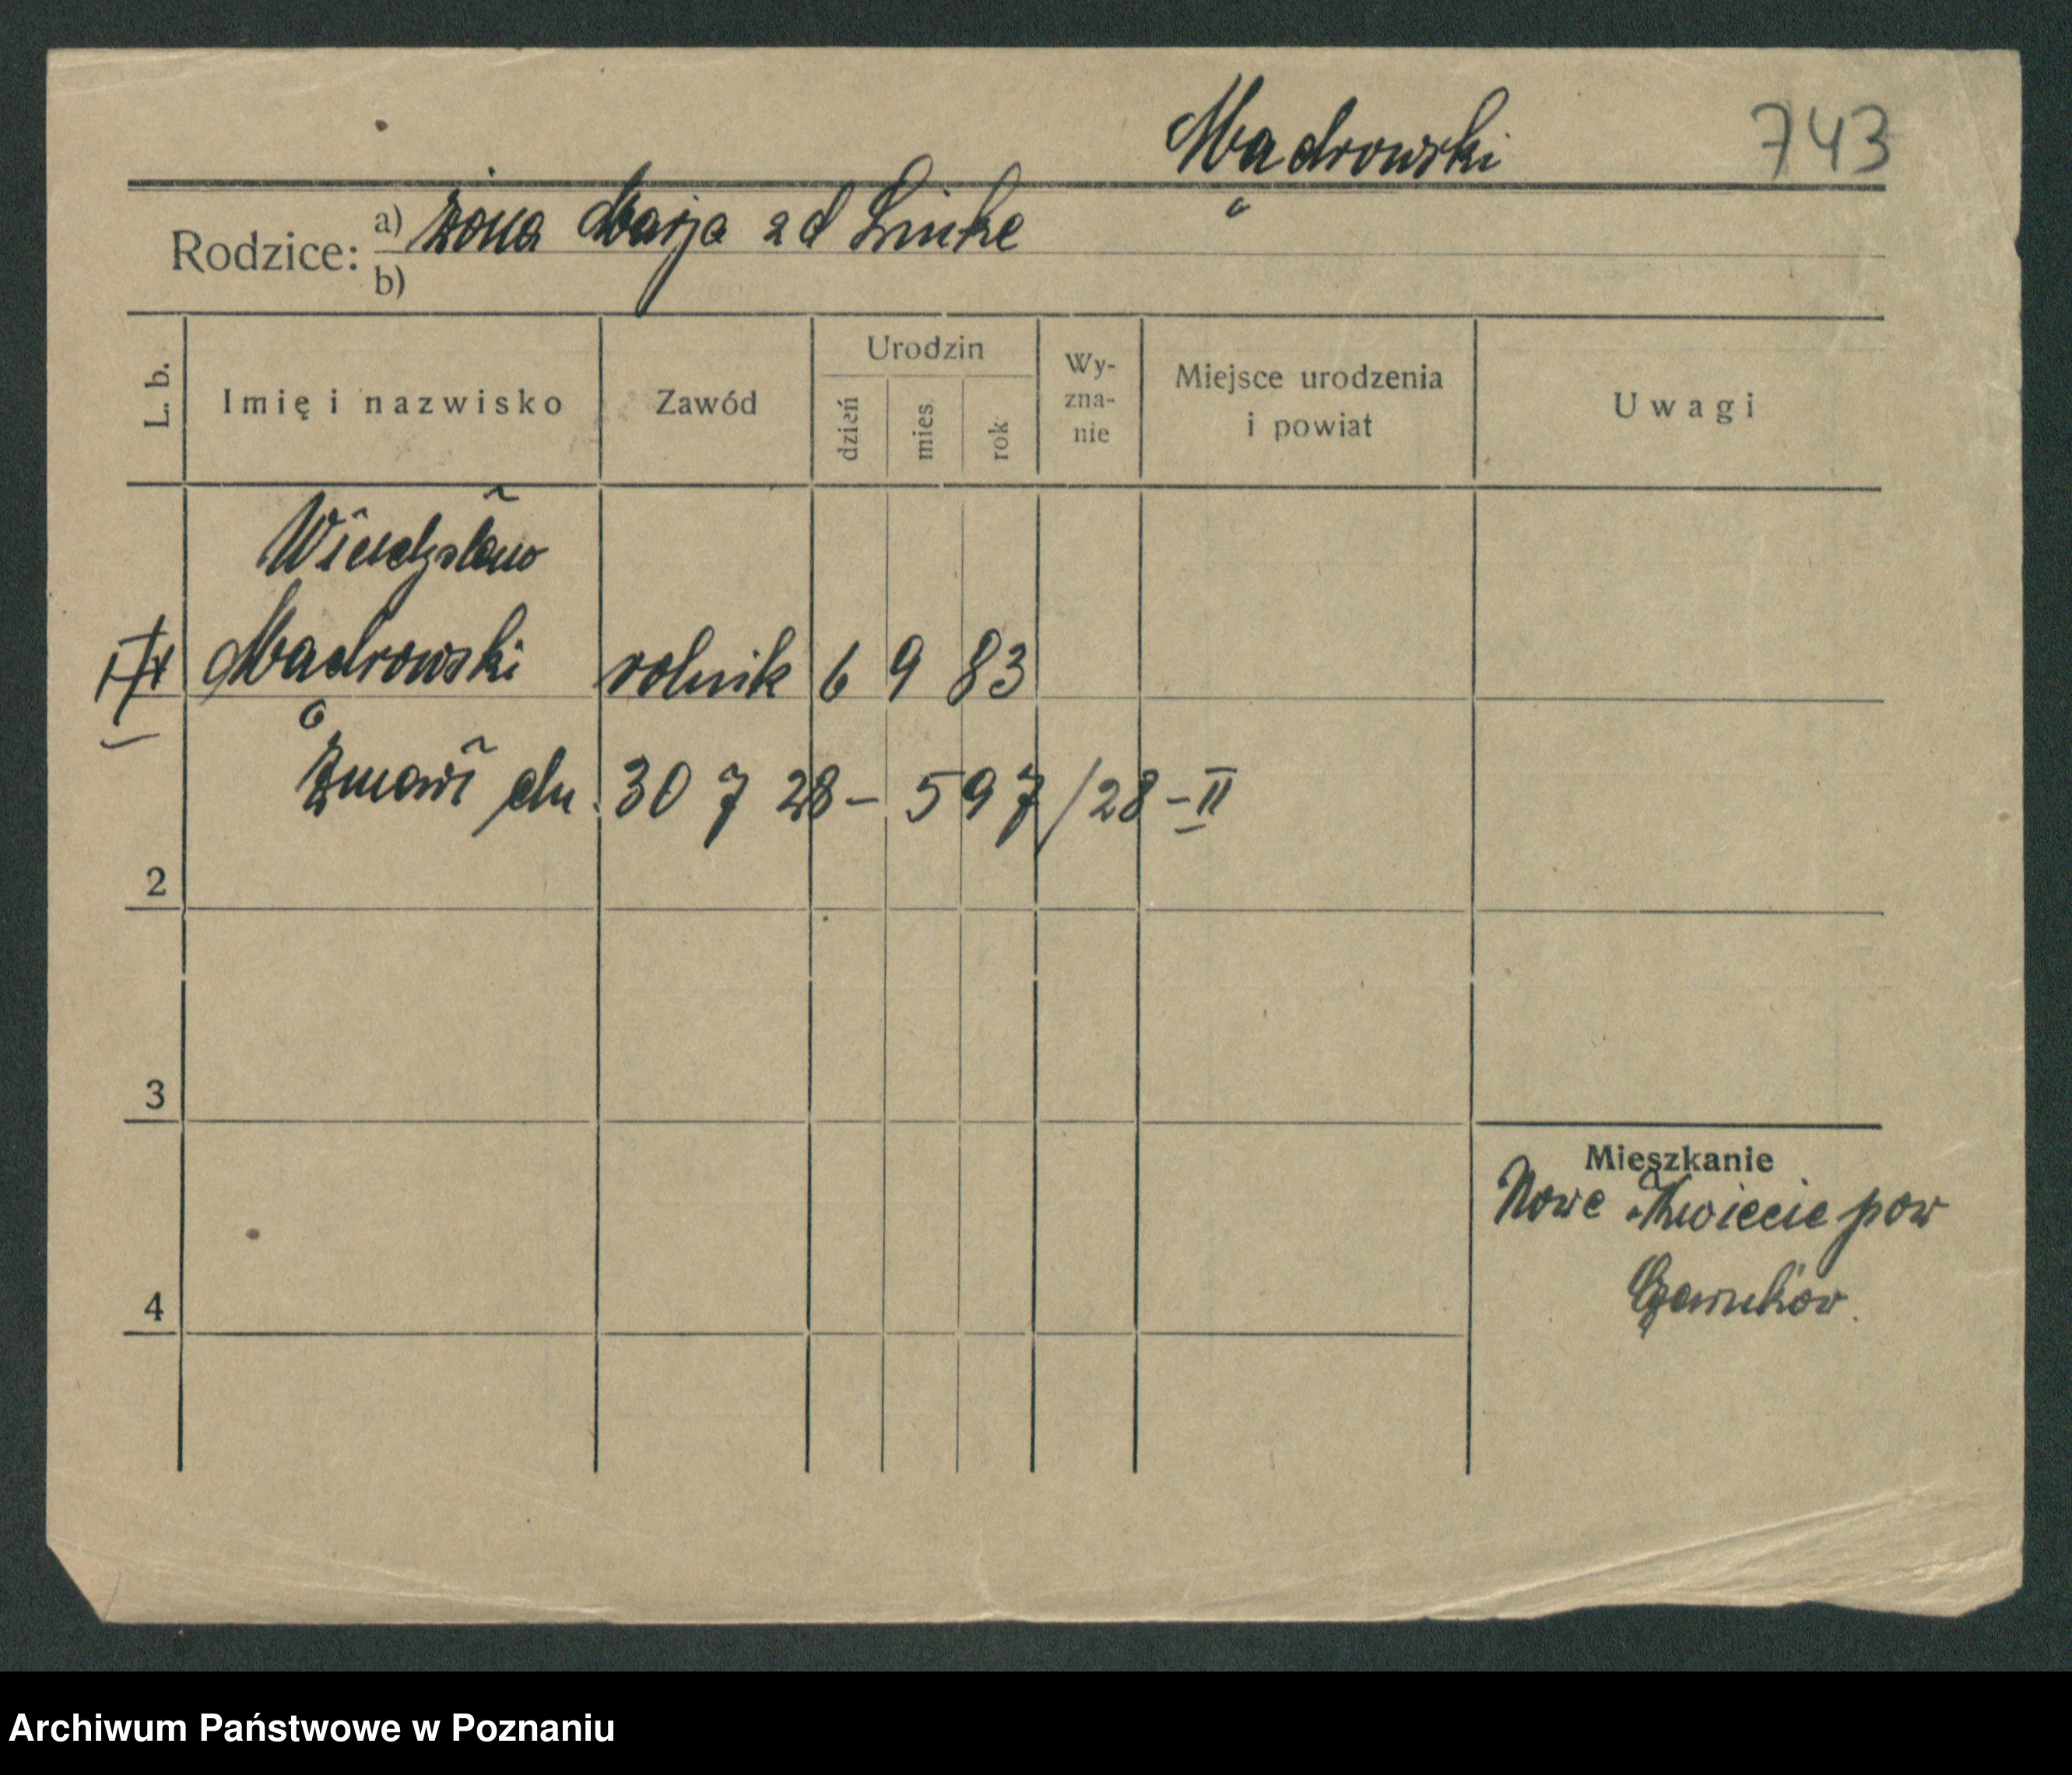 Mądrowski 743
Rodzice: a) żona Marja zd Linke
b)
L. b. Imię i nazwisko Zawód Urodzin dzień mies rok Wy-zna-nie Miejsce urodzenia i powiat Uwagi
Władysław
Mądrowski rolnik 6 9 83
Zmarł dn. 30 7 28 – 597/28 – II
2
3
Mieszkanie
Nowe Kwiecie pow
Czarnków.
4
Archiwum Państwowe w Poznaniu